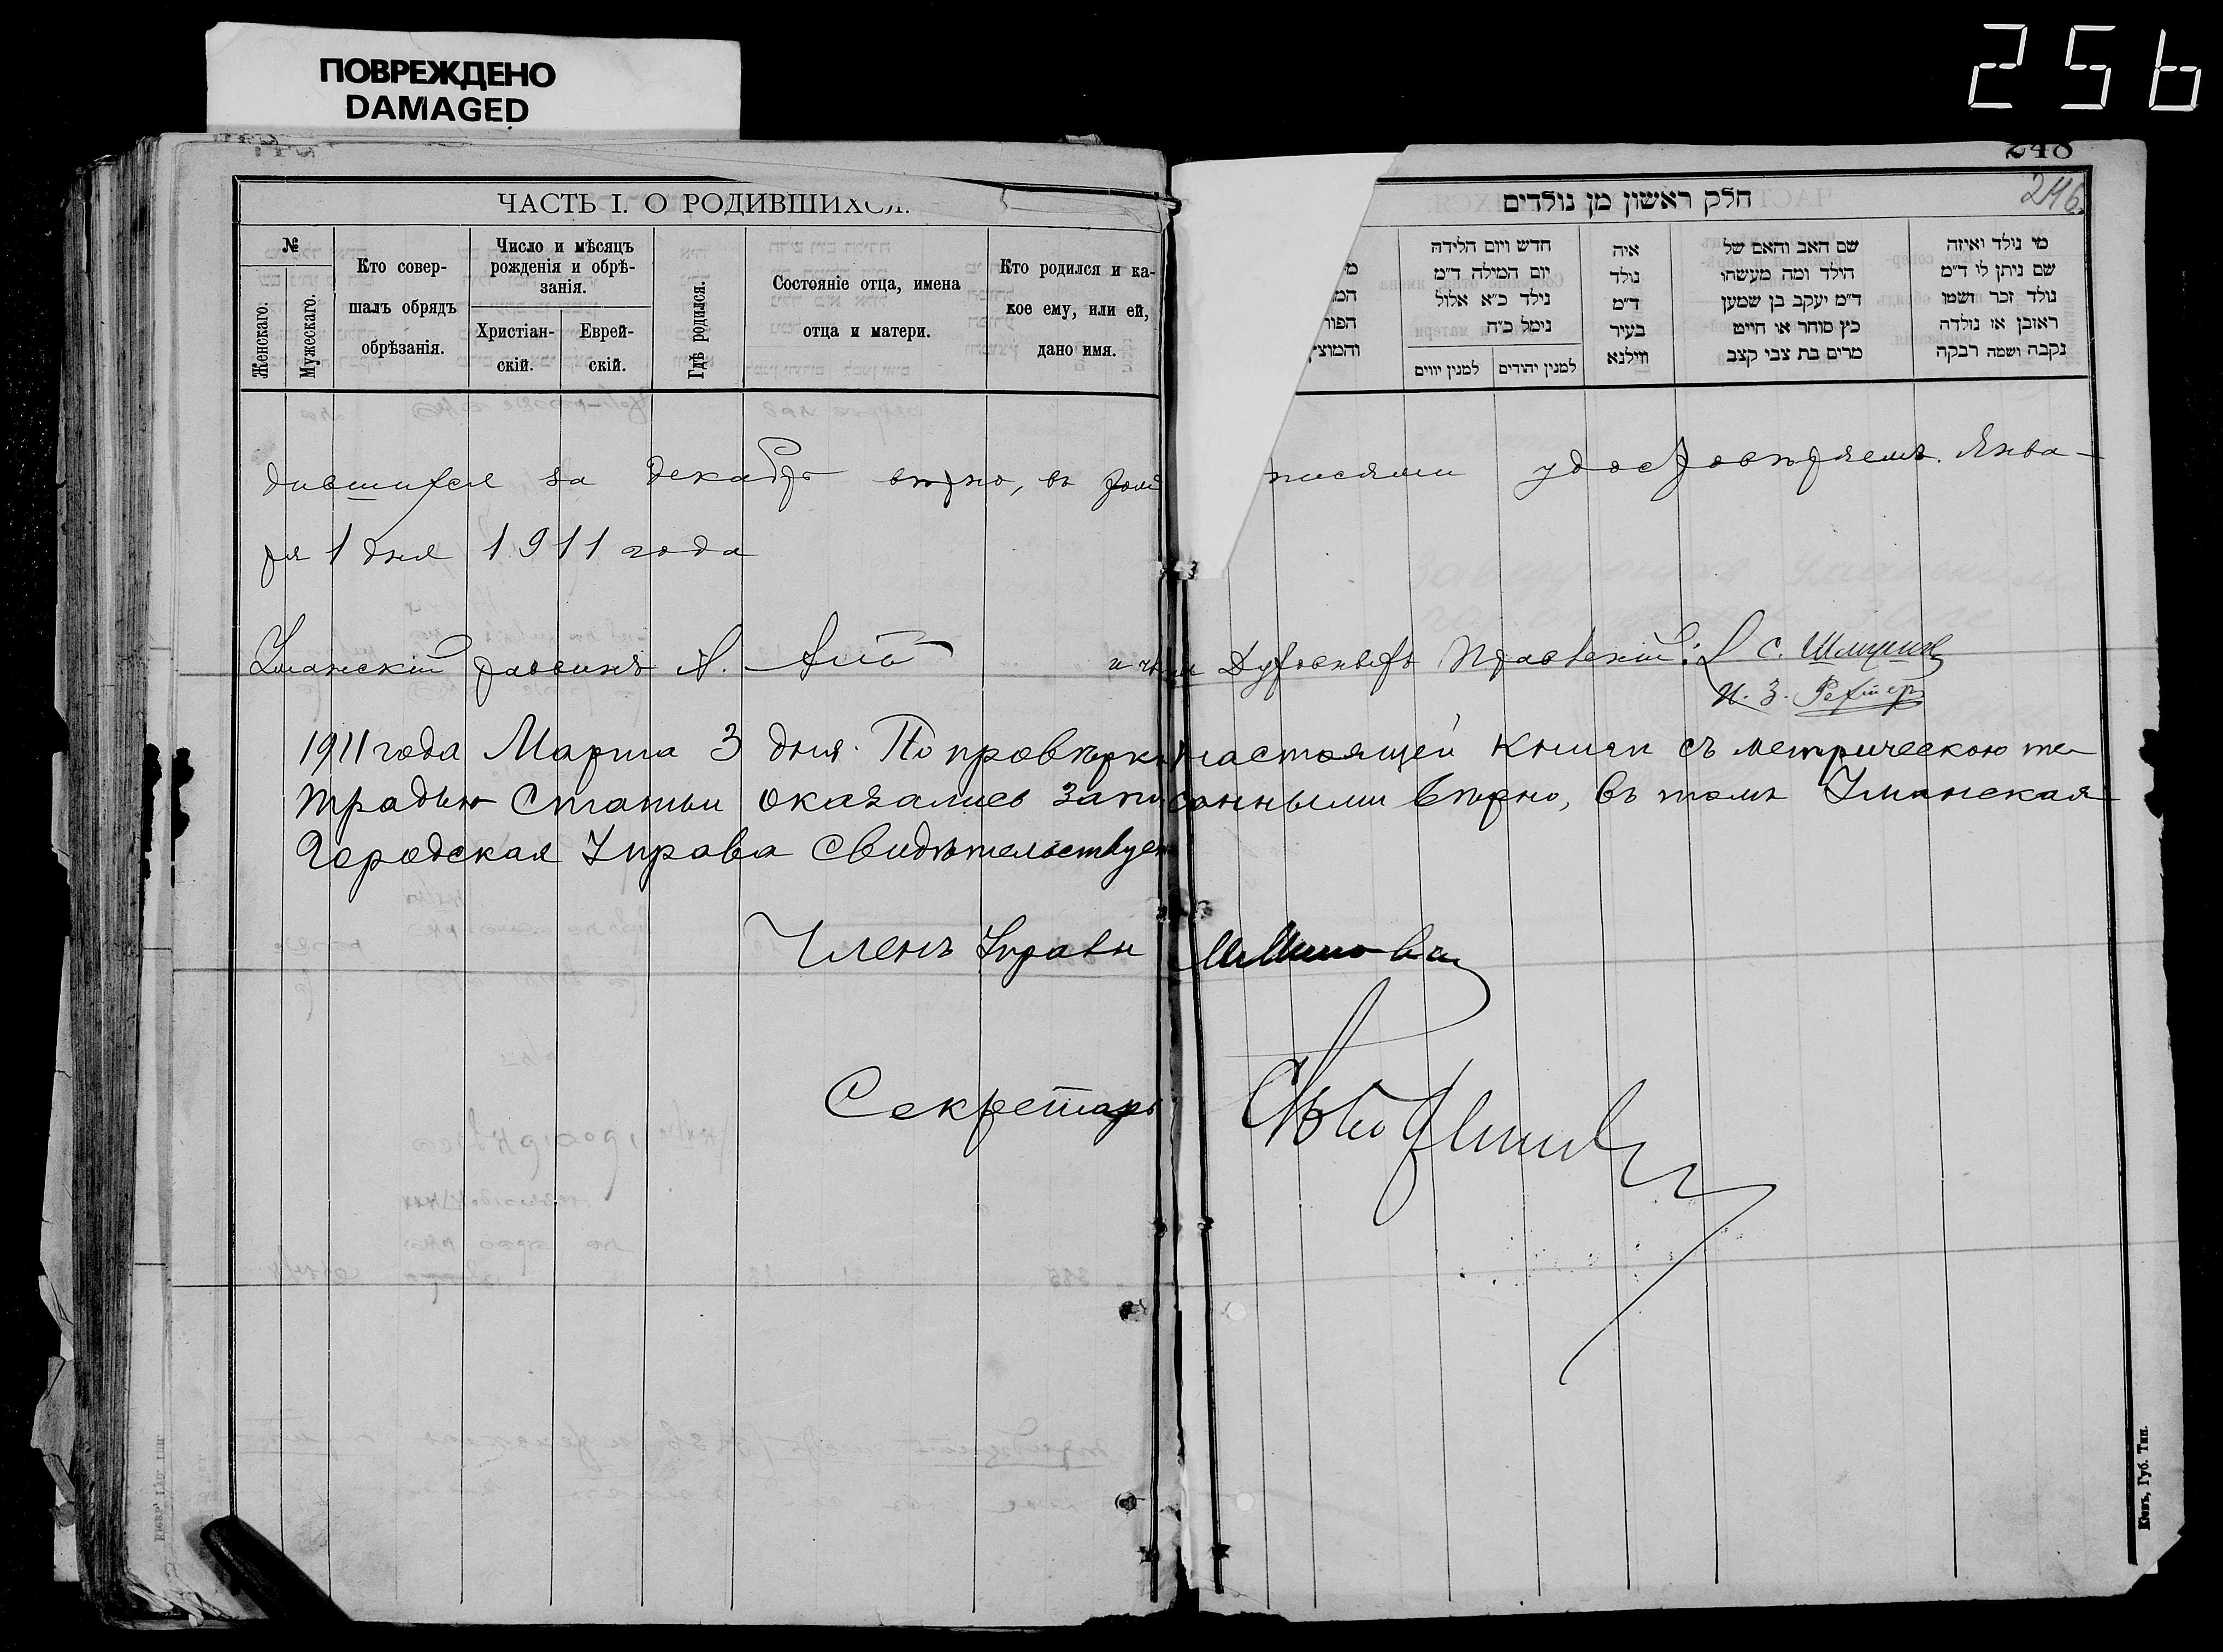 ПОВРЕЖДЕНО
DAMAGED
256
248
246
ЧАСТЬ I. О РОДИВШИХСЯ.
חלק ראשון מן נולדים
№
Женскаго.
Мужескаго.
Кто совер-
шалъ обрядъ
обрѣзанія.
Число и мѣсяцъ
рожденія и обрѣ-
занія.
Христіан-
скій.
Еврей-
скій.
Гдѣ родился.
Состояніе отца, имена
отца и матери.
Кто родился и ка-
кое ему, или ей,
дано имя.
והמוצי
חדש ויום הלידה
יום המילה ד״מ
נילד כ״א אלול
נימל כ״ה
למנין יווים
למנין יהודים
איה
נולד
ד״מ
בעיר
ווילנא
שם האב והאם של
הילד ומה מעשהו
ד״מ יעקב בן שמען
כץ סוחר או חייט
מרים בת צבי קצב
מי נולד ואיזה
שם ניתן לי ד״מ
נולד זכר ושמו
ראובן או נולדה
נקבה ושמה רבקה
дившихся за декабрь вѣрно, въ томъ писями удостовѣряемъ. Янва-
ря 1 дня 1911 года
Уманскій раввинъ и члены Духовныхъ Правленій: С.
И. З.
1911 года Марта 3 дня. По провѣркѣ настоящей книги съ метрическою те-
традью статьи оказались записанными вѣрно, въ томъ Уманская
Городская Управа свидѣтельствуетъ
Членъ Управы
Секретарь
Кіевъ, Губ. Тип.